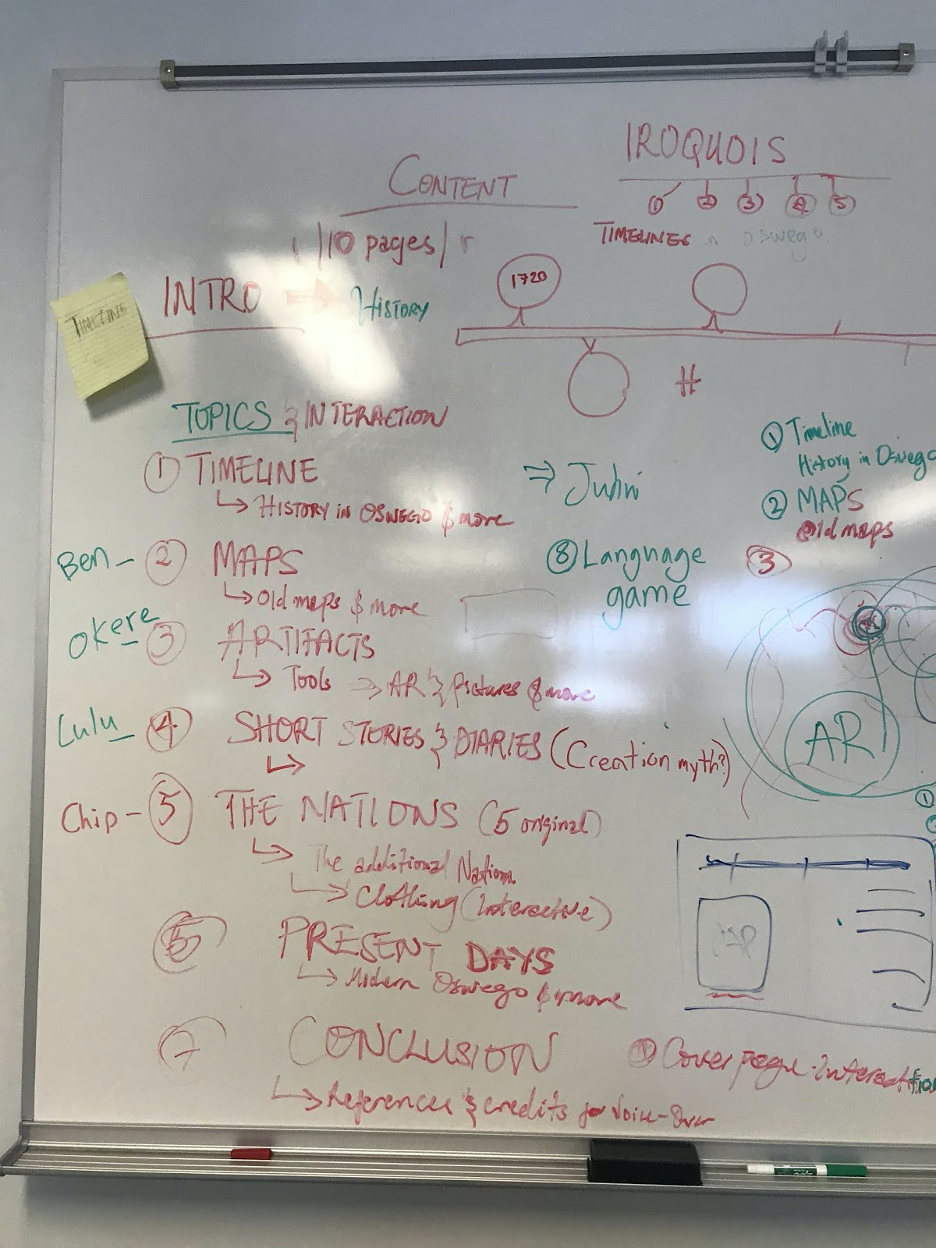 IROQUOIS
CONTENT
1 2 3 4 5
TIMELINES Oswego
10 pages
1720
INTRO
HISTORY
TIMELINE
H
TOPICS & INTERACTION
1 TIMELINE
HISTORY IN OSWEGO & more
1 Timeline
History in Oswego
2 MAPS
Old maps
3
8 Language
game
Ben - 2 MAPS
Old maps & more
Okere 3 ARTIFACTS
Tools ⇒ AR & Pictures & more
AR
Lulu 4 SHORT STORIES & DIARIES (Creation myth?)
1
Chip - 5 THE NATIONS (5 original)
The additional Nation
Clothing (Interactive)
6 PRESENT DAYS
Modern Oswego & more
7 CONCLUSION
Cover page interaction
References & credits for Voice-Over